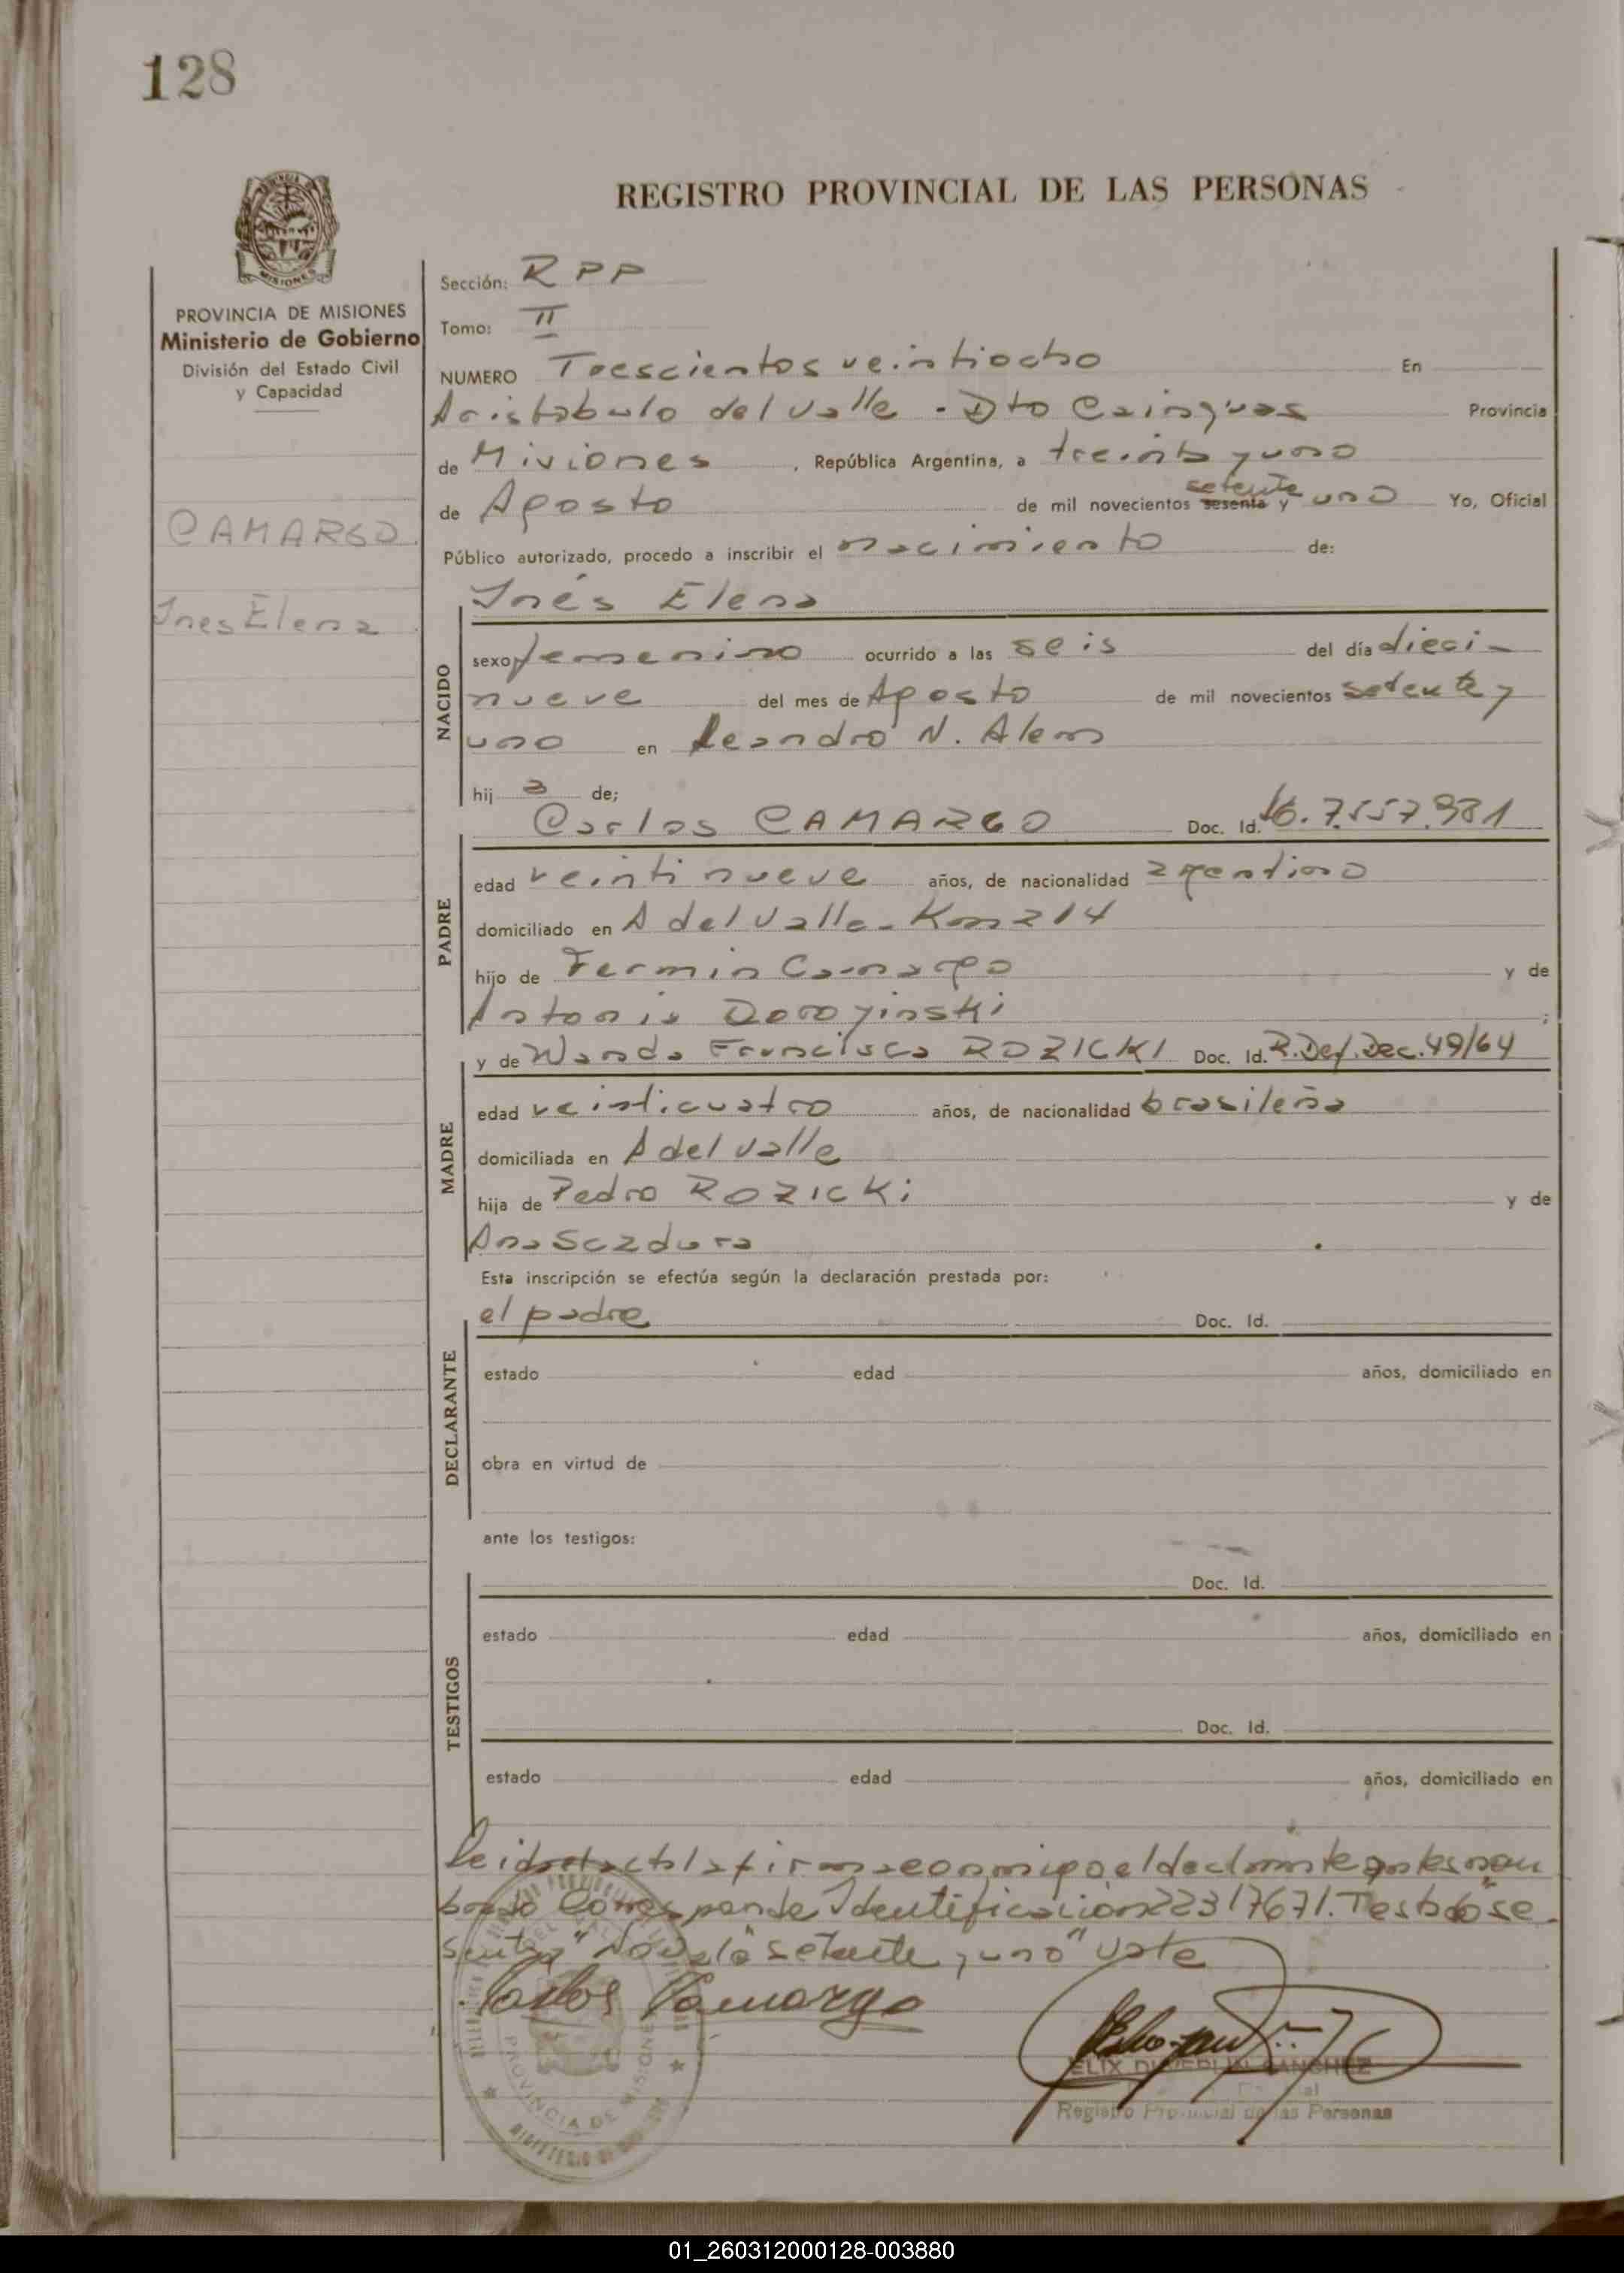 128
REGISTRO PROVINCIAL DE LAS PERSONAS
PROVINCIA DE MISIONES
Ministerio de Gobierno
División del Estado Civil
y Capacidad
CAMARGO
Ines Elena
Sección: RPP
Tomo: II
NUMERO Trescientos veintiocho En
Aristobulo del Valle - Dto Cainguas Provincia
de Misiones, República Argentina, a treinta y uno
setenta
de Agosto de mil novecientos sesenta y uno Yo, Oficial
Público autorizado, procedo a inscribir el nacimiento de:
Inés Elena
NACIDO
sexo femenino ocurrido a las seis del día dieci-
nueve del mes de Agosto de mil novecientos setenta y
uno en Leandro N. Alem
hij a de;
Carlos CAMARGO Doc. Id. 7.557.981
PADRE
edad veintinueve años, de nacionalidad argentino
domiciliado en A del Valle - Km 214
hijo de Fermin Camargo y de
Antonia Doroyinski ;
y de Wanda Francisca ROZICKI Doc. Id. R.Def.Dec.49/64
MADRE
edad veinticuatro años, de nacionalidad brasileña
domiciliada en A del Valle
hija de Pedro ROZICKi y de
Ana Sczdura
Esta inscripción se efectúa según la declaración prestada por:
el padre Doc. Id.
DECLARANTE
estado edad años, domiciliado en
obra en virtud de
ante los testigos:
Doc. Id.
TESTIGOS
estado edad años, domiciliado en
Doc. Id.
estado edad años, domiciliado en
Leida el acta la firma conmigo el declarante antes nom
brado Corresponde Identificacion 22317671. Testado "se
senta" setenta y uno" Vale
Carlos Camargo
SANCHEZ
Registro Provincial de las Personas
PROVINCIA DE MISIONES
01_260312000128-003880